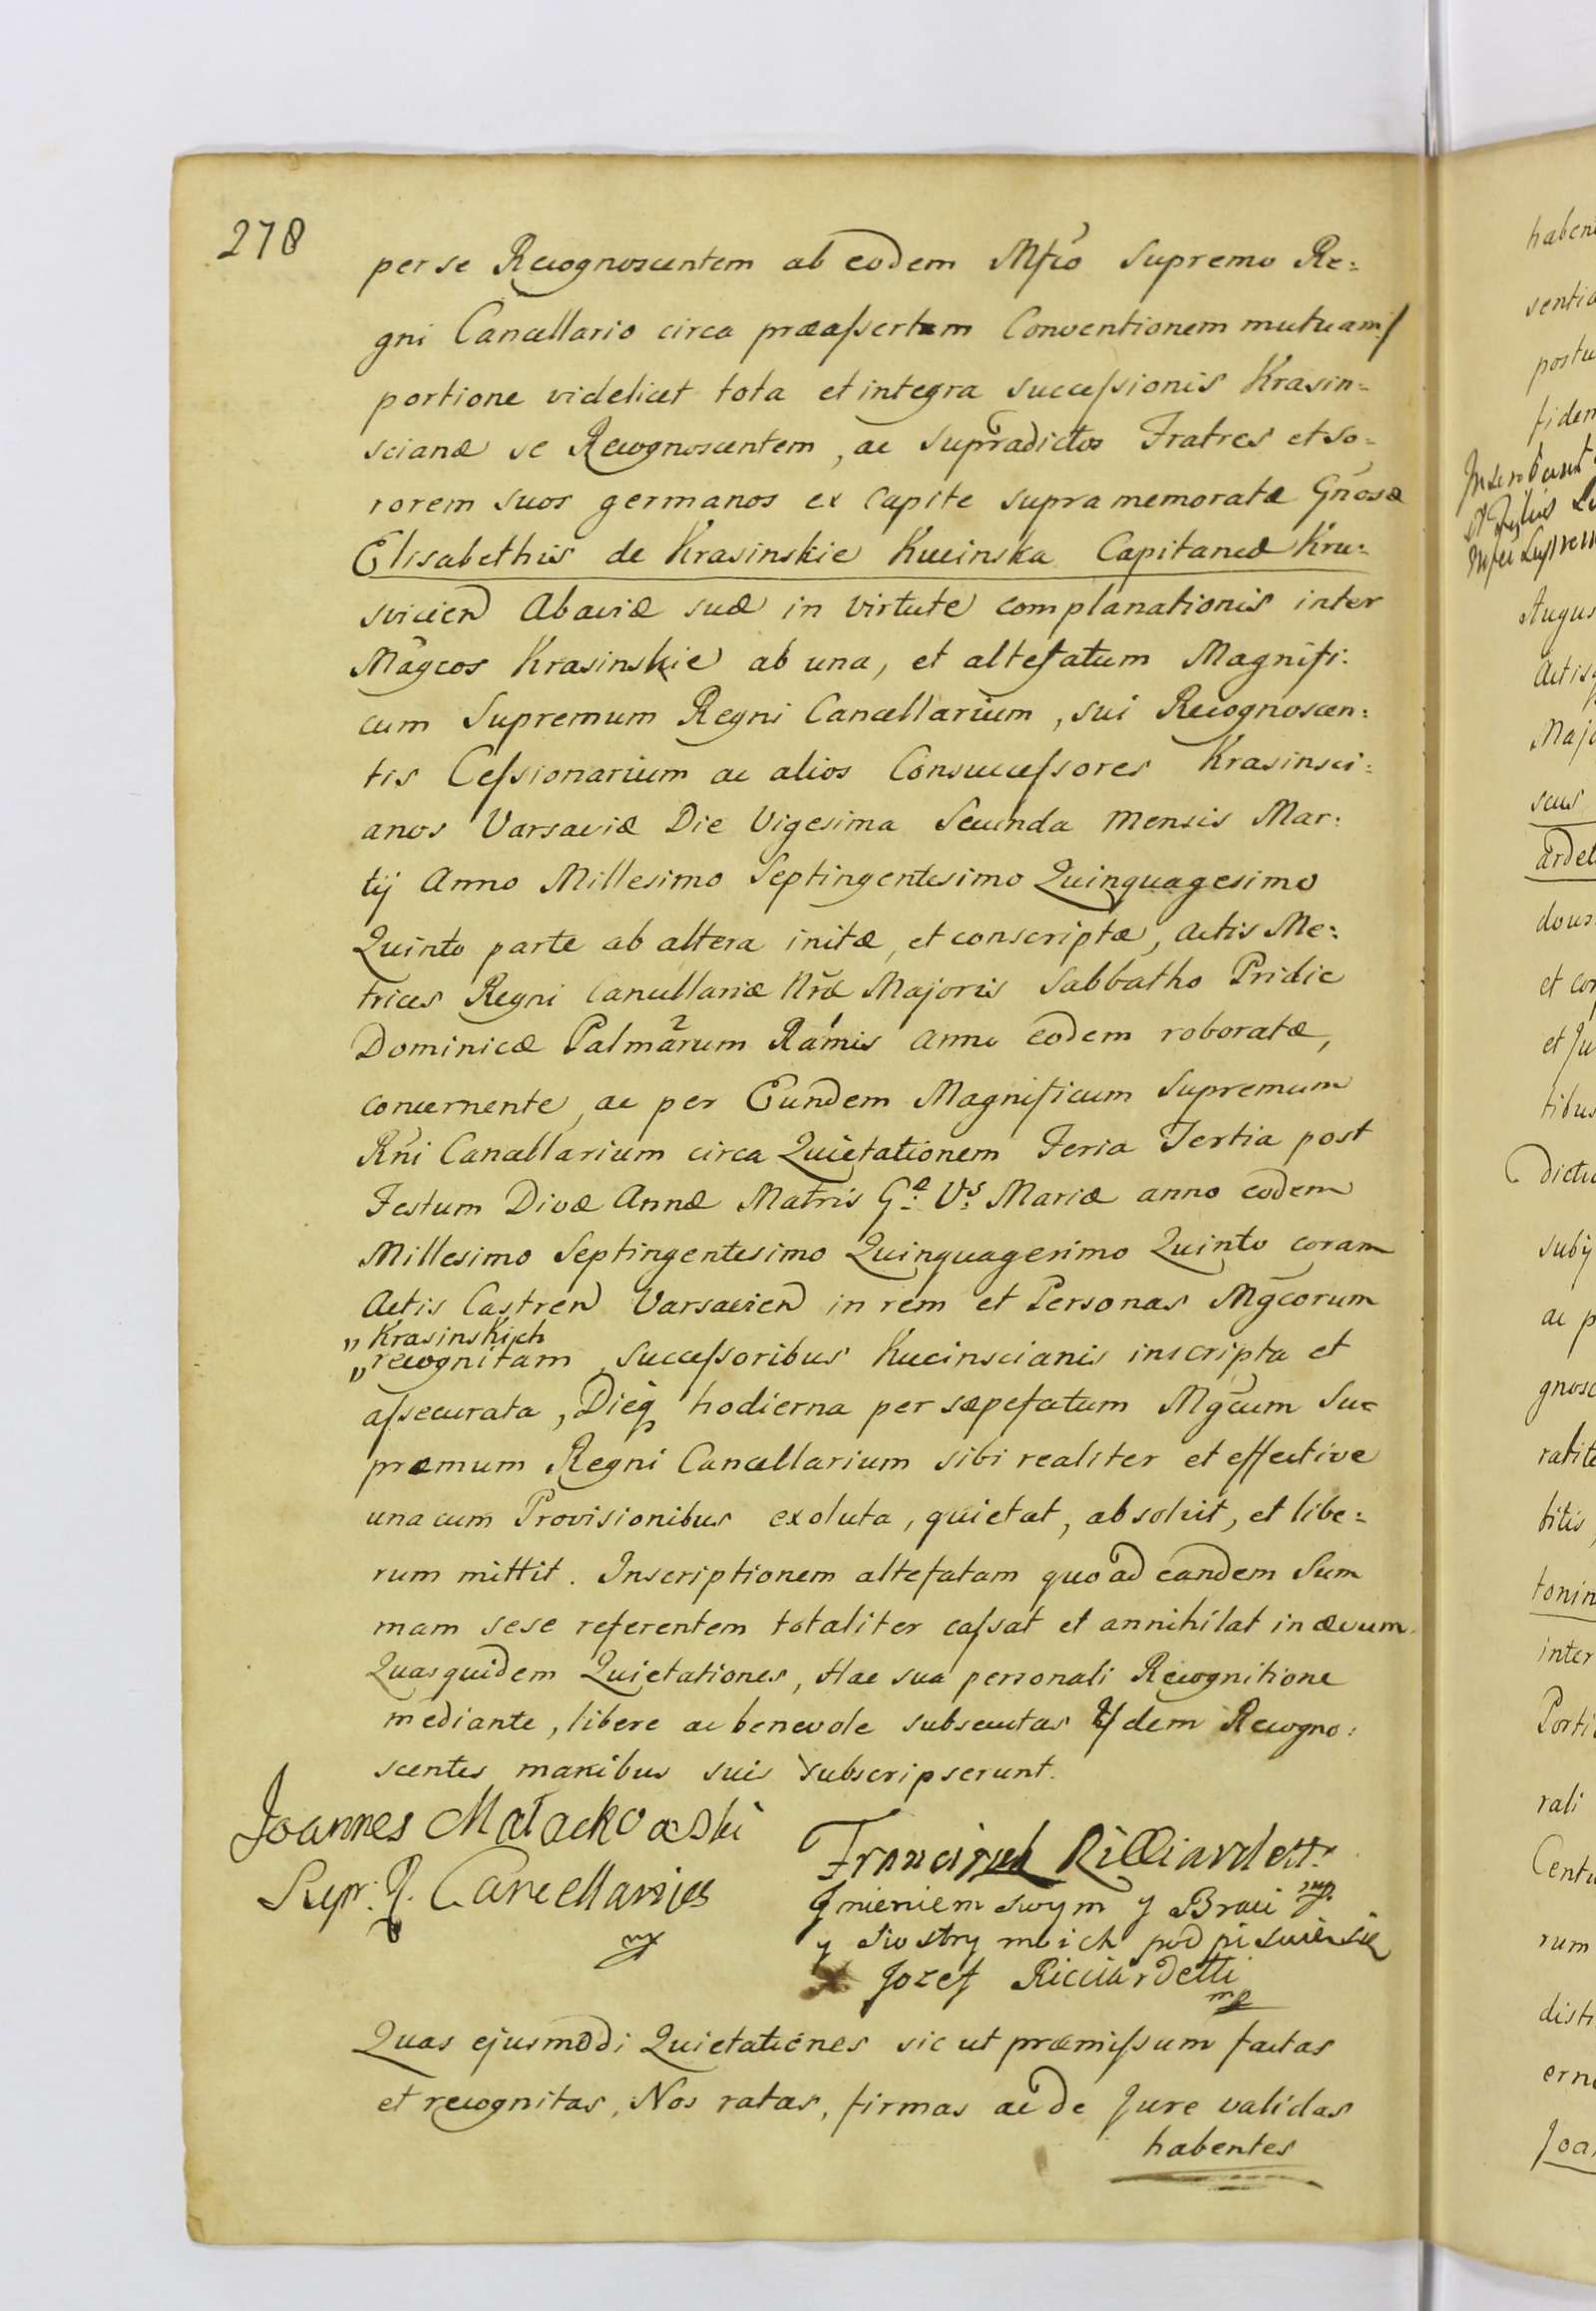 278
per se Recognoscentem ab eodem Mfco Supremo Re:
gni Cancellario circa præassertam Conventionem mutuam/
portione videlicet tota et integra successionis Krasin=
scianæ se Recognoscentem, ac supradictos Fratres et so=
rorem suos germanos ex Capite supra memoratæ Gñosæ
Elisabethis de Krasinskie Kucinska Capitaneæ Kru=
svicien Abaviæ suæ in virtute complanationis inter
Magcos Krasinskie ab una, et altefatum Magnifi:
cum Supremum Regni Cancellarium, sui Recognoscen:
tis Cessionarium ac alios Consuccessores Krasinsci:
anos Varsaviæ Die Vigesima Secunda Mensis Mar:
tij Anno Millesimo Septingentesimo Quinquagesimo
Quinto parte ab altera initæ, et conscriptæ, Actis Me:
trices Regni Cancellariæ Nræ Majoris Sabbatho Pridie
Dominicæ Palmarum Ramis Anno eodem roboratæ,
concernente, ac per Eundem Magnificum Supremum
Rñi Cancellarium circa Quietationem Feria Tertia post
Festum Divæ Annæ Matris G:æ V:s Mariæ anno eodem
Millesimo Septingentesimo Quinquagesimo Quinto coram
Actis Castren Varsavien in rem et Personas Mgcorum
„Krasinskich
„recognitam, Successoribus Kucinscianis inscripta et
assecurata, Dieq hodierna per sæpefatum Mgcum Su=
præmum Regni Cancellarium sibi realiter et effective
una cum Provisionibus exoluta, quietat, absolvit, et libe:
rum mittit. Inscriptionem altefatam quo ad eandem Sum
mam sese referentem totaliter cassat et annihilat in ævum.
Quas quidem Quietationes, Hac sua personali Recognitione
mediante, libere ac benevole subsecutas Ijdem Recogno:
scentes manibus suis subscripserunt.
Joannes Małachowski
Supr. R. Cancellarius
mp
Franciszek Ricciardetti
mp
Jmieniem swym y Braci
y Siostry moich podpisuie się
Jozef Ricciardetti
mp
Quas ejusmodi Quietationes sic ut præmissum factas
et recognitas, Nos ratas, firmas ac de Jure validas
habentes
haben
sentia
postu
fidem
Inscribunt
Augus
Actisq
Majo
scus
ardet
et con
et Ju
tibus
dictu
subij
ac p
gnosc
ratite
bitis,
tonin
inter
Porti
rali
Centu
rum
disti
erne
Joa